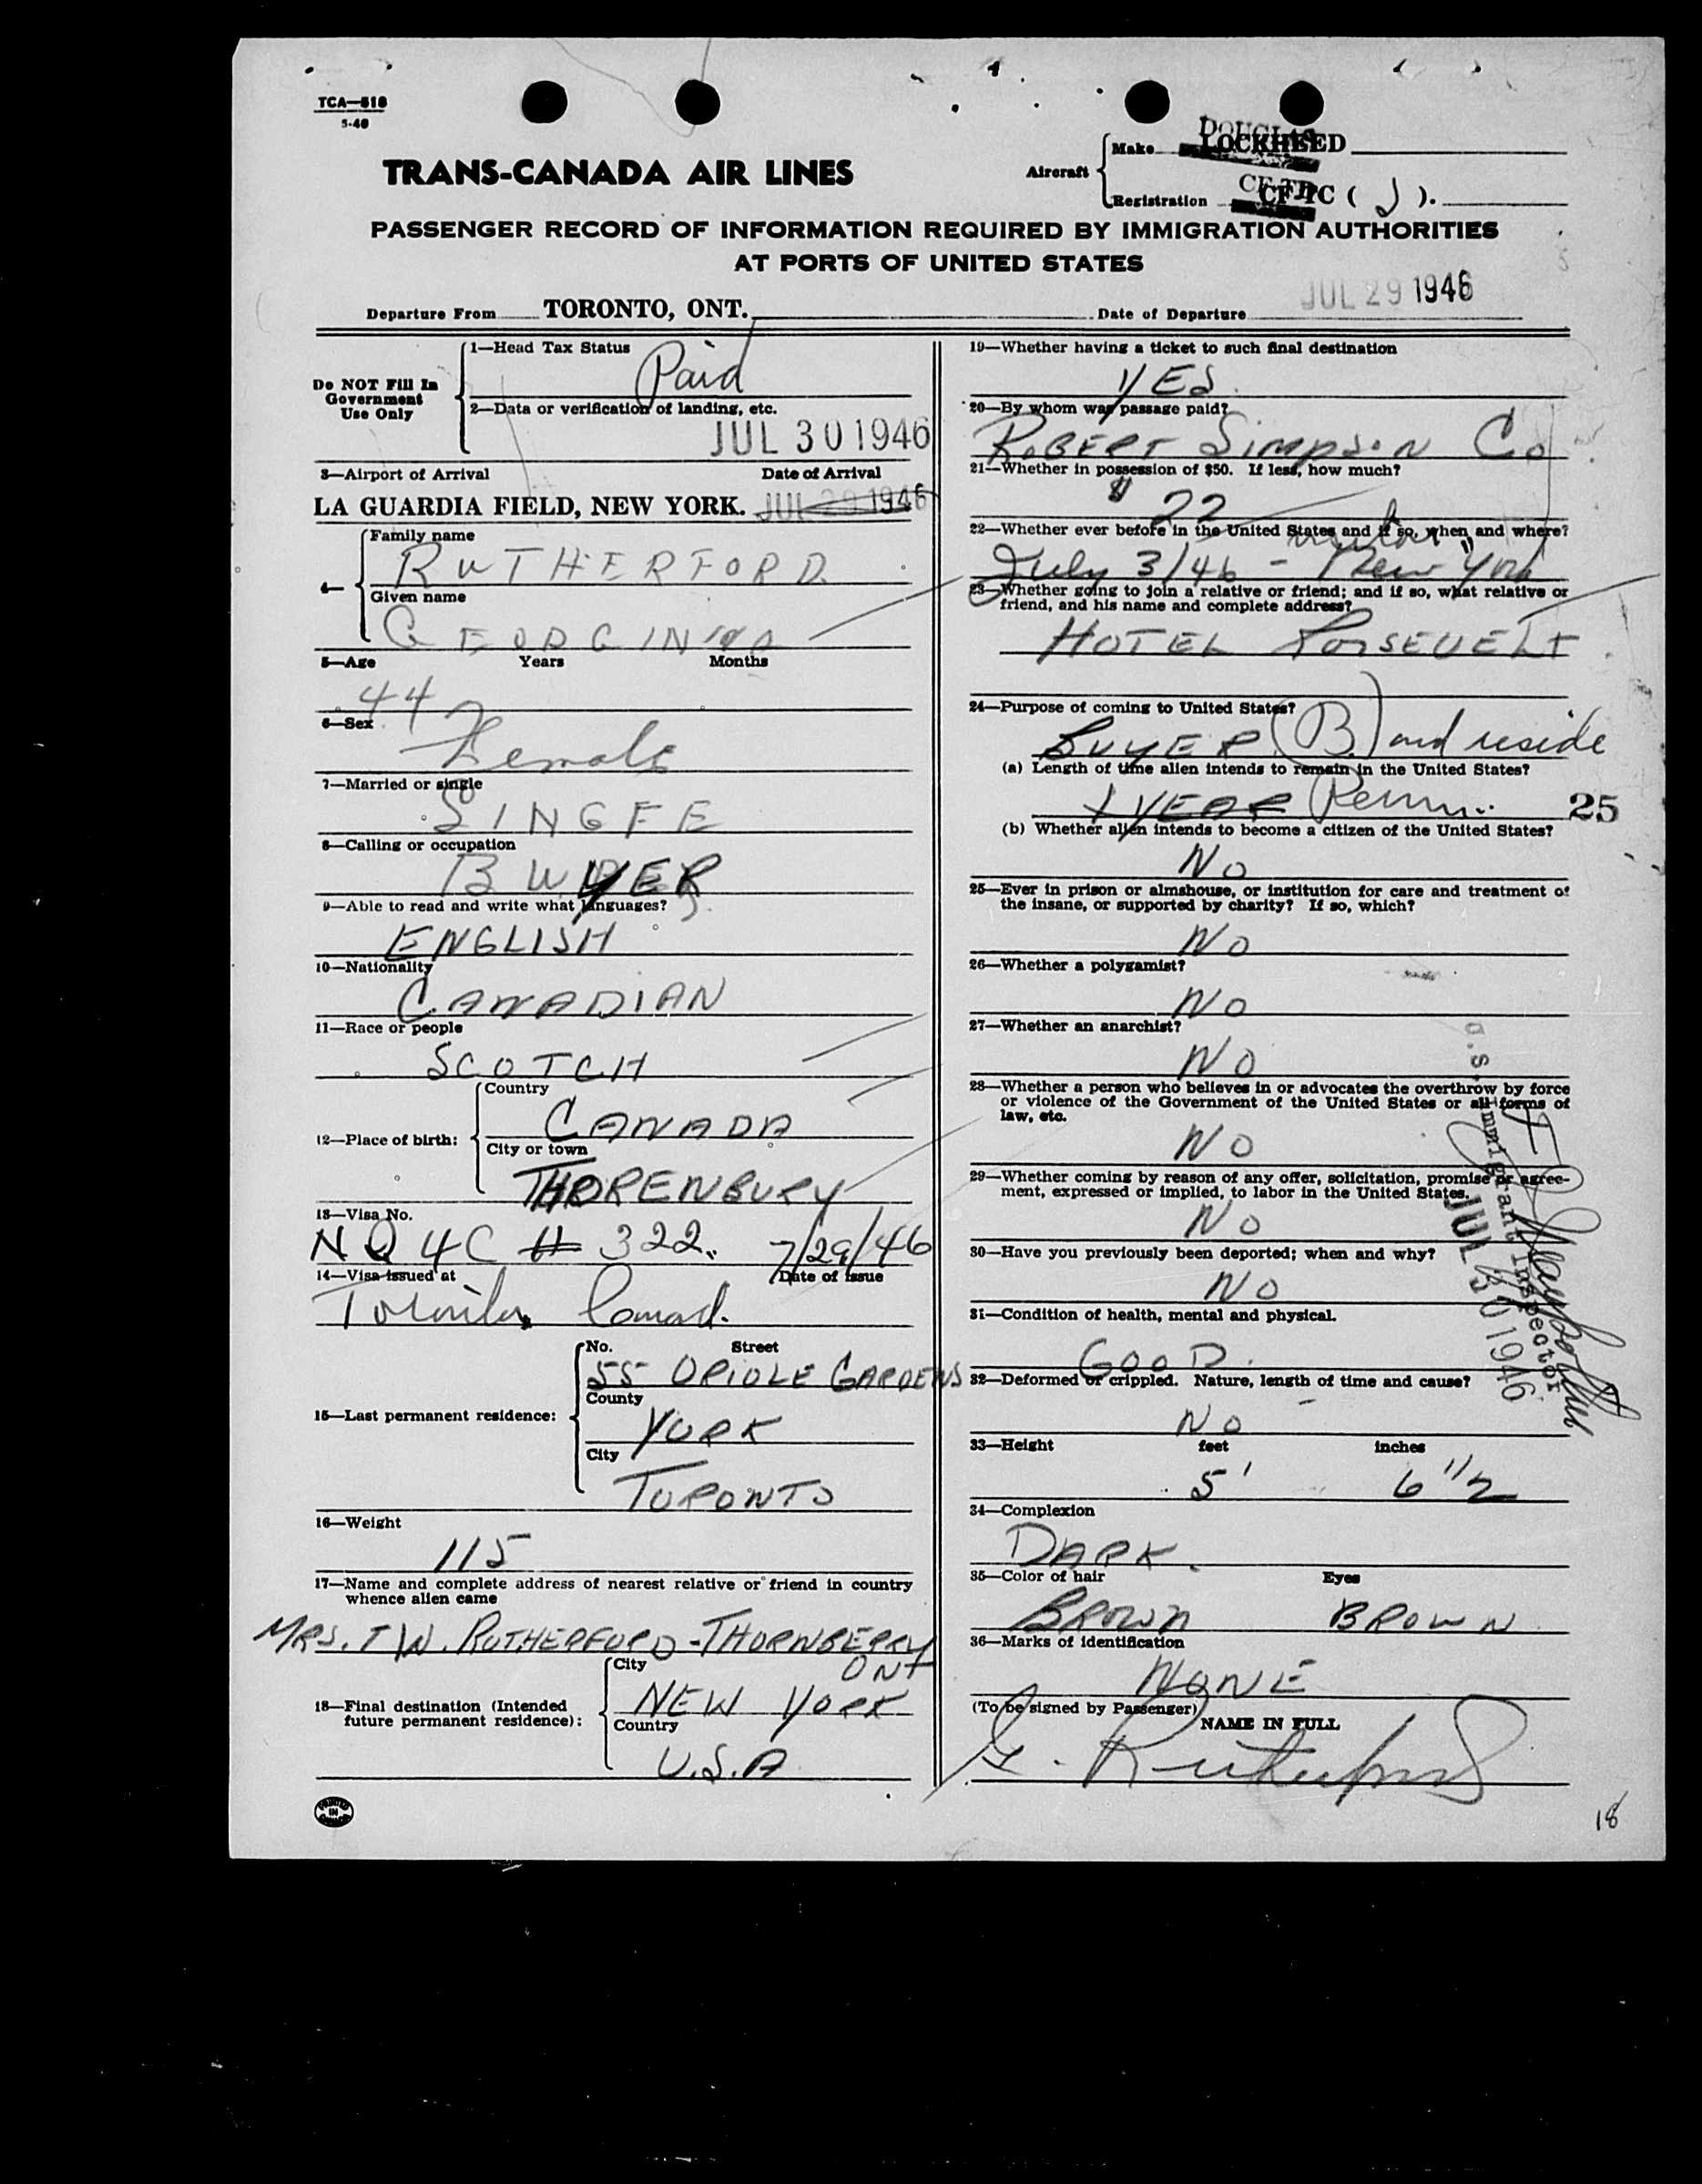 TCA—518
5-46
TRANS-CANADA AIR LINES
Aircraft
Make LOCKHEED
DOUGLAS
Registration CF-TC ( J ).
PASSENGER RECORD OF INFORMATION REQUIRED BY IMMIGRATION AUTHORITIES
AT PORTS OF UNITED STATES
Departure From TORONTO, ONT. Date of Departure JUL 29 1946
Do NOT Fill In
Government
Use Only
1—Head Tax Status
Paid
2—Data or verification of landing, etc.
JUL 30 1946
3—Airport of Arrival Date of Arrival
LA GUARDIA FIELD, NEW YORK. JUL 29 1946
4—
Family name
RUTHERFORD
Given name
GEORGINNA
5—Age Years Months
44
6—Sex
Female
7—Married or single
SINGFE
8—Calling or occupation
BUYER
9—Able to read and write what languages?
ENGLISH
10—Nationality
CANADIAN
11—Race or people
SCOTCH
12—Place of birth:
Country
CANADA
City or town
THORENBURY
13—Visa No.
NQ 4C # 322. 7/29/46
14—Visa issued at Date of issue
Toronto, Canad.
15—Last permanent residence:
No. Street
55 ORIOLE GARDENS
County
YORK
City
TORONTO
16—Weight
115
17—Name and complete address of nearest relative or friend in country
whence alien came
MRS. T W. RUTHERFORD - THORNBERRY
ONT
18—Final destination (Intended
future permanent residence):
City
NEW YORK
Country
U.S.A
PRINTED
IN
CANADA
19—Whether having a ticket to such final destination
YES.
20—By whom was passage paid?
ROBERT SIMPSON Co
21—Whether in possession of $50. If less, how much?
$ 22
22—Whether ever before in the United States and if so, when and where?
visitor
July 3/46 - New York
23—Whether going to join a relative or friend; and if so, what relative or
friend, and his name and complete address?
HOTEL ROOSEVELT
24—Purpose of coming to United States?
BUYER (B.) and reside
(a) Length of time alien intends to remain in the United States?
1 YEAR Perm. 25
(b) Whether alien intends to become a citizen of the United States?
No
25—Ever in prison or almshouse, or institution for care and treatment of
the insane, or supported by charity? If so, which?
No
26—Whether a polygamist?
No
27—Whether an anarchist?
No
28—Whether a person who believes in or advocates the overthrow by force
or violence of the Government of the United States or all forms of
law, etc.
No
29—Whether coming by reason of any offer, solicitation, promise or agree-
ment, expressed or implied, to labor in the United States.
No
30—Have you previously been deported; when and why?
No
31—Condition of health, mental and physical.
GOOD.
32—Deformed or crippled. Nature, length of time and cause?
No
33—Height feet inches
5' 6 1/2
34—Complexion
DARK.
35—Color of hair Eyes
BROWN BROWN
36—Marks of identification
NONE
(To be signed by Passenger)
NAME IN FULL
G. Rutherford
U.S. Immigrant Inspector
JUL 30 1946
18